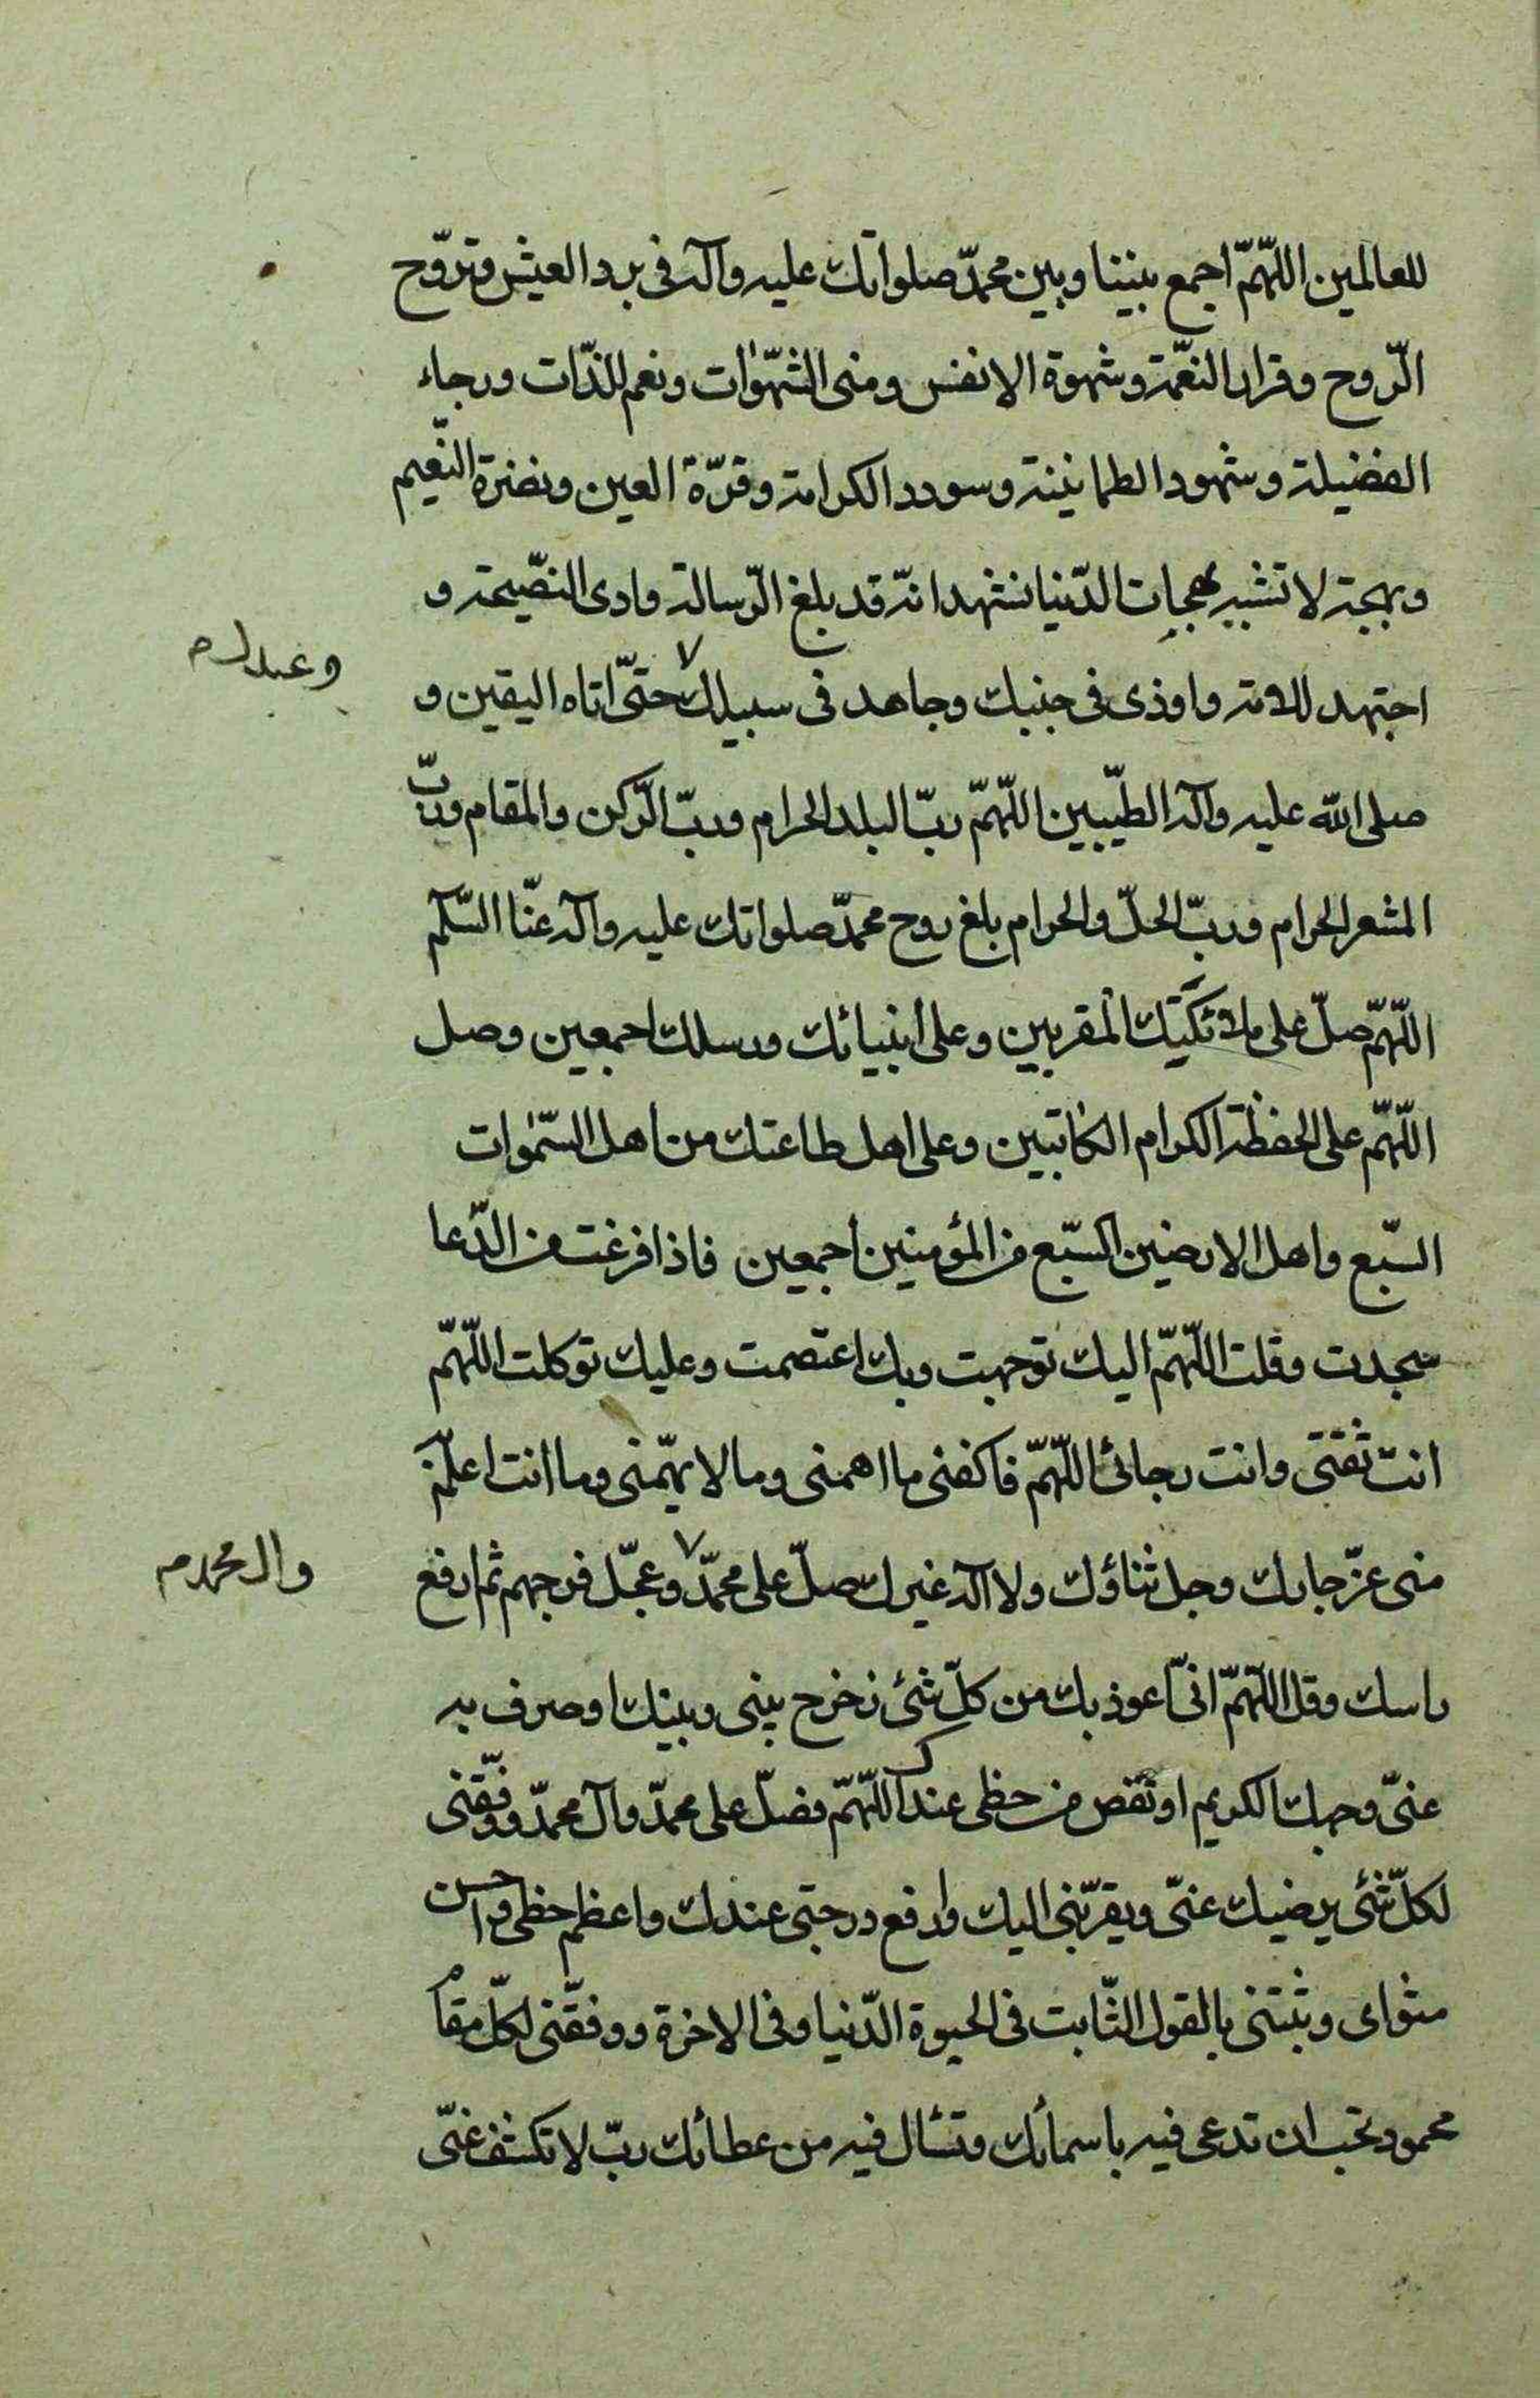 للعالمين اللّهمّ اجمع بيننا وبين محمّد صلواتك عليه وآله فى برد العيش وتروّح
الرّوح وقرار النعّمة وشهوة الانفس ومنى الشّهوات ونعم اللذّات ورجاء
الفضيلة وشهود الطمانينة وسودد الكرامة وقرّة العين ونضرة النّعيم
وبهجة لا تشبه بهجات الدّنيا نشهد انّه قد بلغ الرّسالة وادى النصّيحة و
اجتهد للامة واوذى فى جنبك وجاهد فى سبيلك حتىّ اتاه اليقين و
وعبدك م
صلى الله عليه وآله الطيّبين اللّهمّ ربّ البلد الحرام وربّ الرّكن والمقام وربّ
المشعر الحرام وربّ الحلّ والحرام بلغ روح محمّد صلواتك عليه وآله عنّا السّلم
اللّهمّ صلّ على ملائكتك المقربين وعلى أنبيائك ورسلك اجمعين وصل
اللّهمّ على الحفظة الكرام الكاتبين وعلى اهل طاعتك من اهل السّموات
السّبع واهل الارضين السّبع من المؤمنين اجمعين فاذا فرغت من الدّعا
سجدت وقلت اللّهمّ اليك توجهت وبك اعتصمت وعليك توكلت اللّهمّ
انت ثقتى وانت رجائى اللّهمّ فاكفنى ما اهمنى وما لا يهمّنى وما انت اعلم به
منى عزّ جارك وجل ثناؤك ولا آله غيرك صلّ على محمّد وعجّل فرجهم ثم ارفع
وال محمد م
راسك وقل اللّهمّ انىّ اعوذ بك من كلّ شئ زخرح بينى وبينك او صرف به
عنىّ وجهك الكريم او نقص من حظى عندك اللّهمّ فصلّ على محمّد وآل محمّد ووفّقنى
لكلّ شئ يرضيك عنىّ ويقرّبنى اليك وارفع درجتى عندك واعظم حظى واحسن
مثواى وثبتنى بالقول الثّابت فى الحيوة الدّنيا وفى الاخرة ووفقّنى لكلّ مقام
محمود تحب ان تدعى فيه باسمائك وتسأل فيه من عطائك ربّ لا تكشف عنىّ